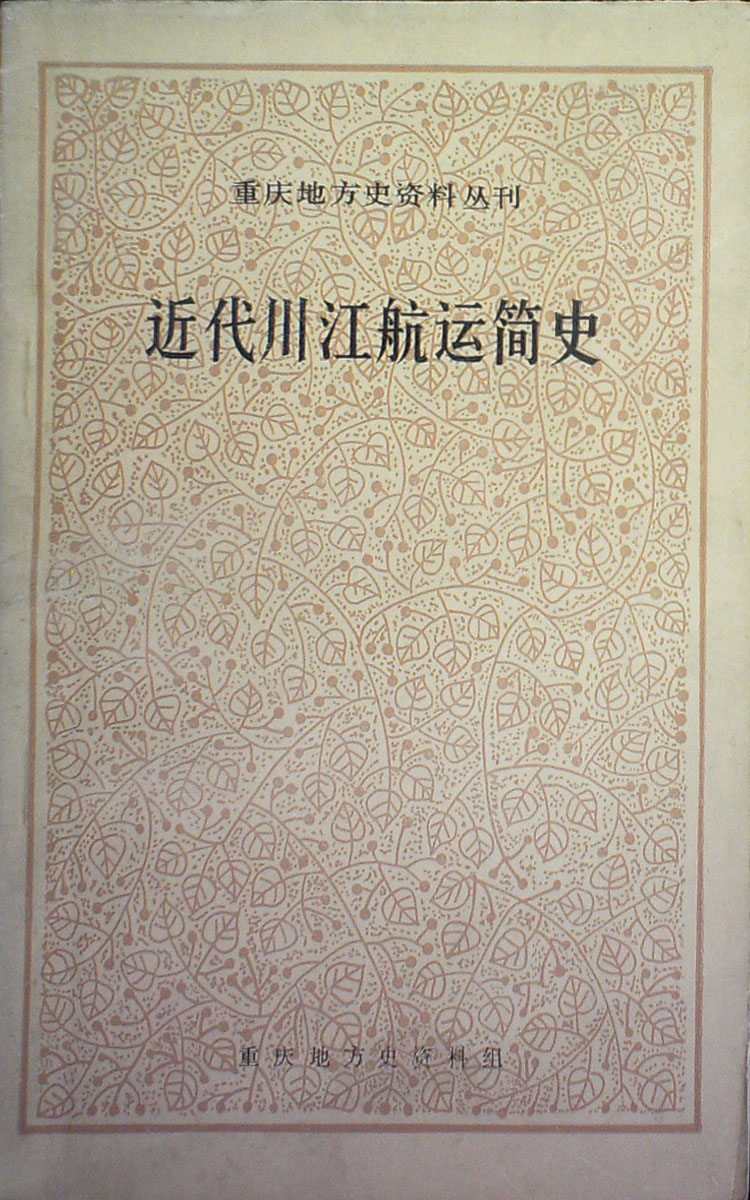 重庆地方史资料丛刊
近代川江航运简史
重庆地方史资料组